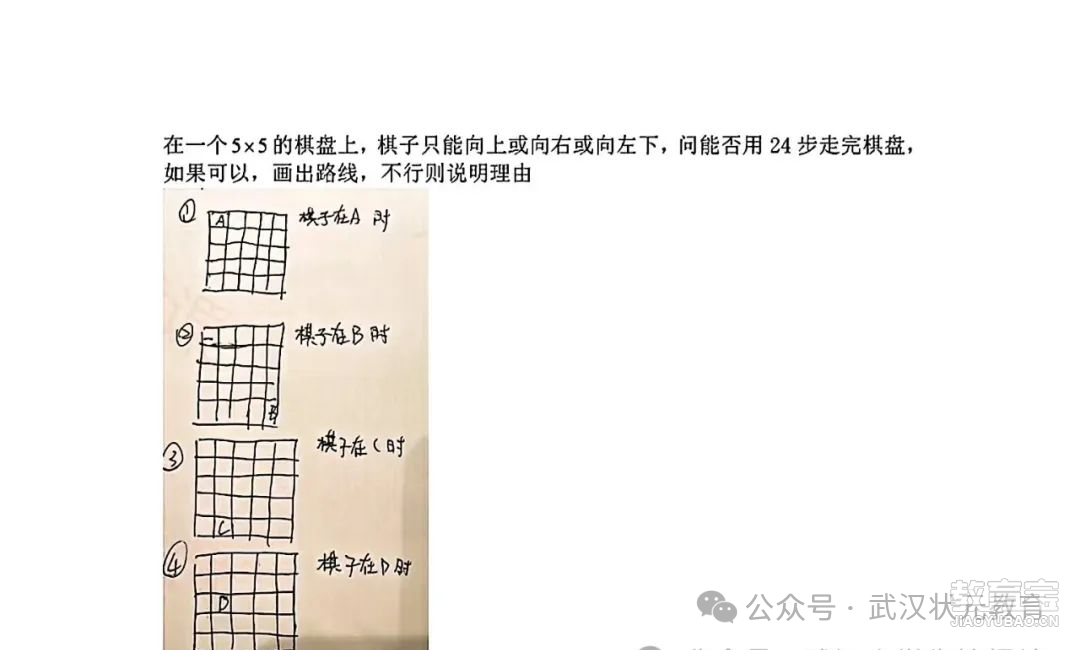 在一个5×5的棋盘上，棋子只能向上或向右或向左下，问能否用 24 步走完棋盘，
如果可以，画出路线，不行则说明理由
① A 棋子在A 时
② 棋子在B时
B
③ 棋子在C时
C
④ 棋子在D时
D
公众号 · 武汉状元教育
教育宝
JIAOYUBAO.CN